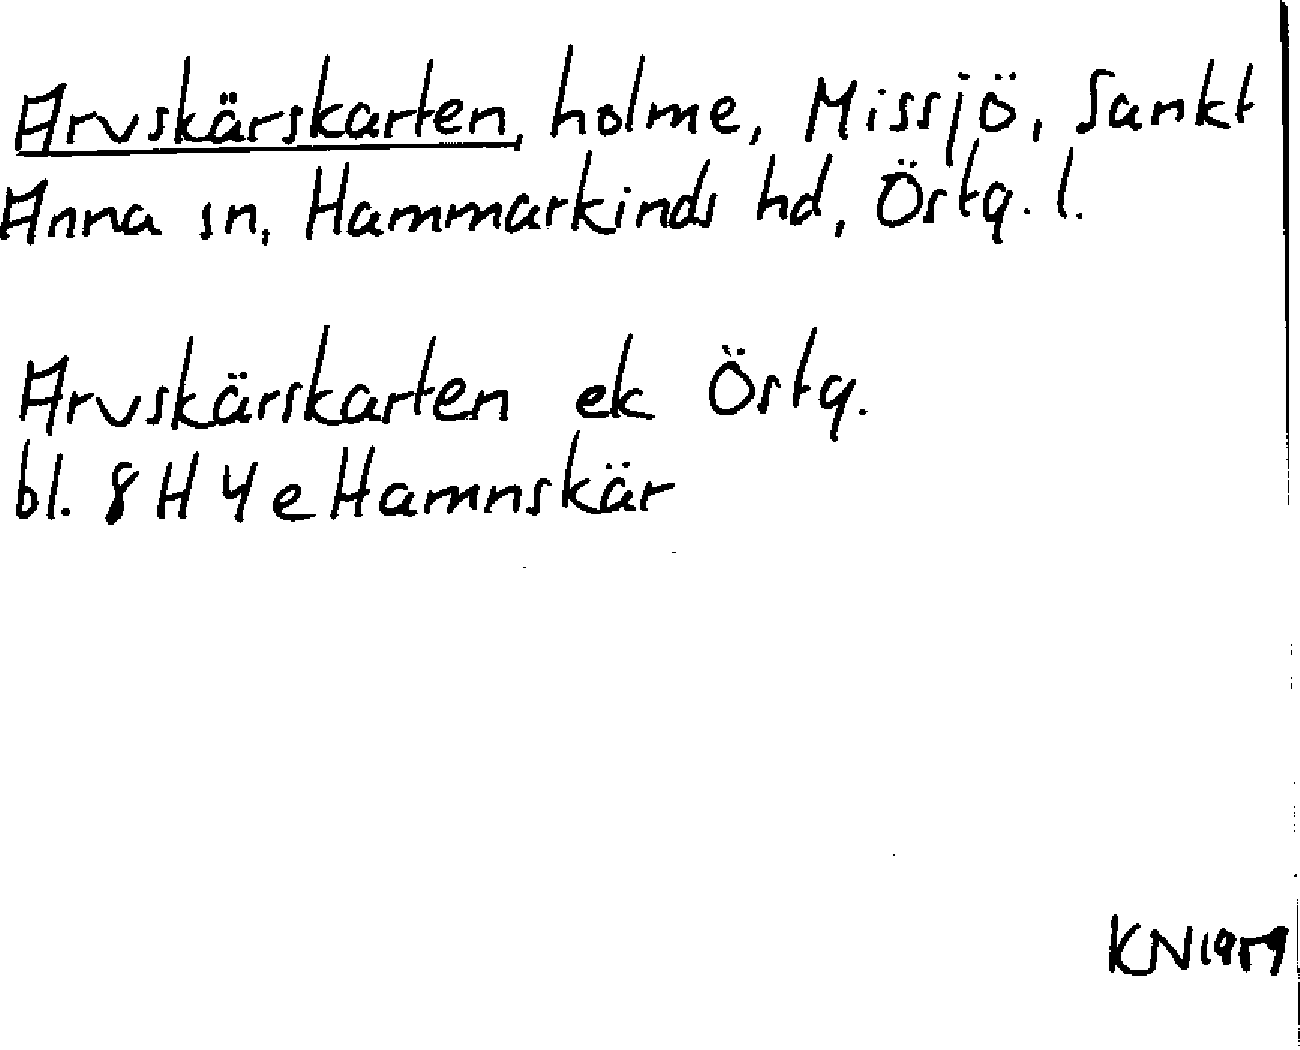 Arvskärskarten, holme, Missjö, Sankt
Anna sn, Hammarkinds hd, Östg. l.
Arvskärskarten ek Östg.
bl. 8 H 4 e Hamnskär
KN